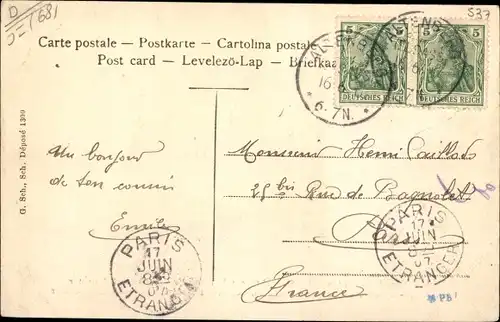 D
J=1681
S37
Carte postale — Postkarte — Cartolina postale
Post card — Levelező-Lap — Briefkaa
DEUTSCHES REICH
5 5
DEUTSCHES REICH
5 5
6.7N.
G. Sch., Sch. Déposé 1399
Un bonjour
de ton cousin
Emile
Monsieur Henri Caillod
25 bis Rue de Bagnolet
Paris
France
PARIS
17
JUIN
ETRANGER
PARIS
17
JUIN
ETRANGER